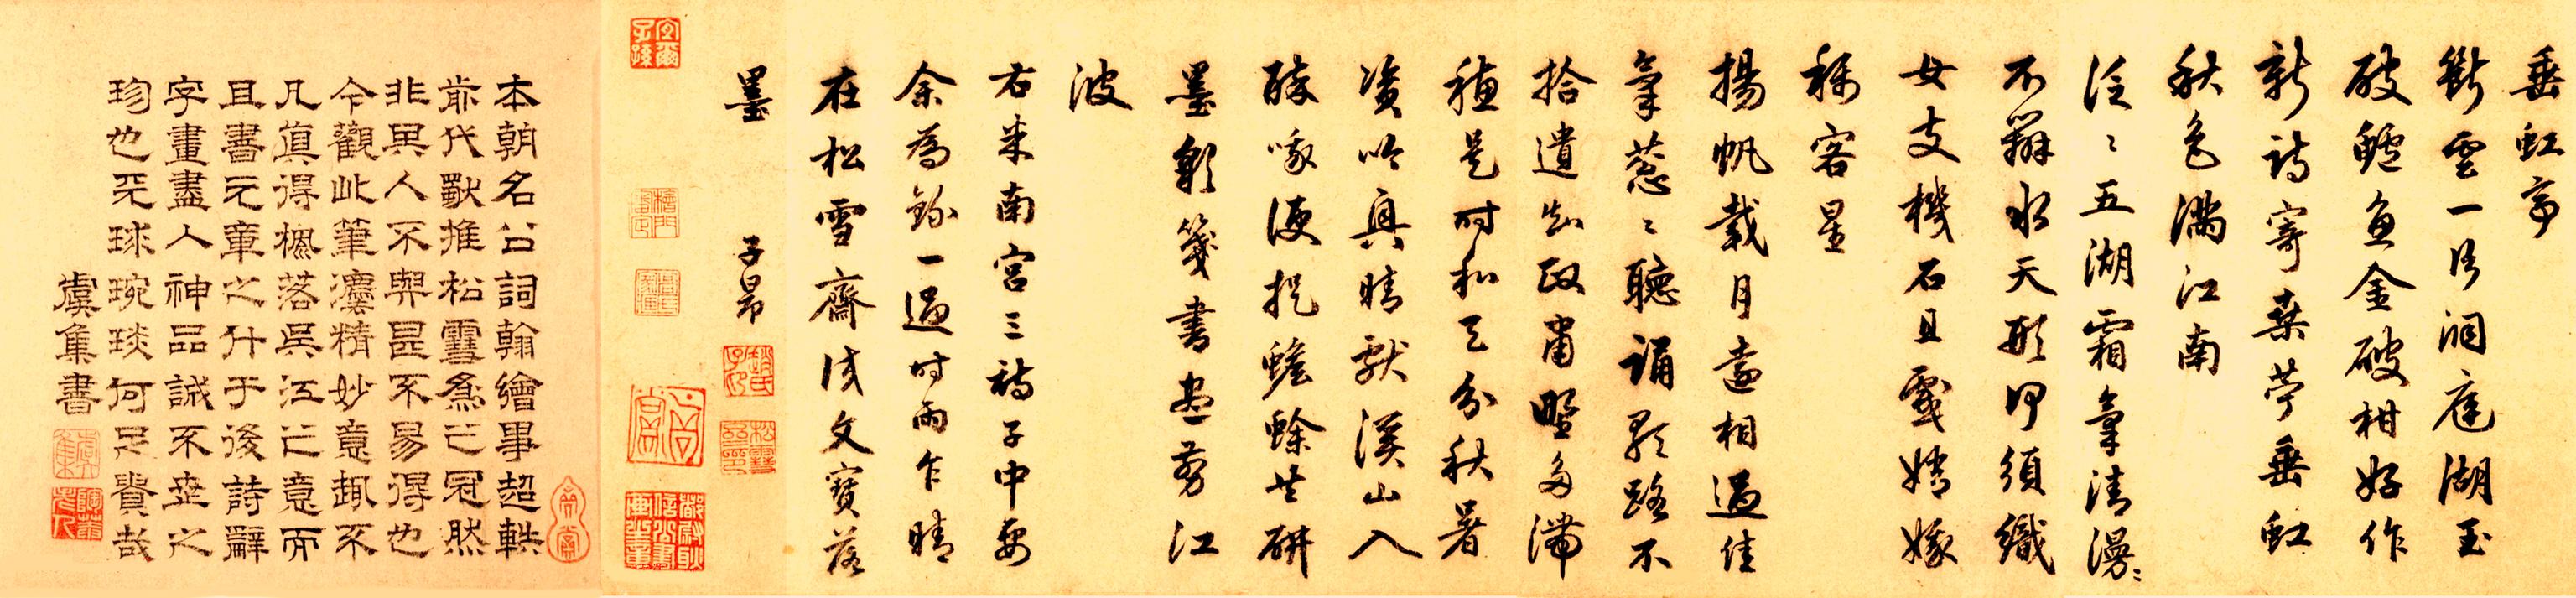 垂虹亭
斷雲一片洞庭湖玉
破鱸魚金破柑好作
新詩寄桑苧垂虹
秋色滿江南
泛泛五湖霜氣清漫漫
不辨水天形何須織
女支機石且戲嫦娥
稱客星
揚帆載月遠相過佳
氣蔥蔥聽誦歌路不
拾遺知政肅野多滯
穗是時和天分秋暑
資吟興晴獻溪山入
醉哦便捉蟾蜍共研
墨彩箋書盡剪江
波
右米南宮三詩子中要
余為錄一過時雨乍晴
在松雪齋試文寶落
墨 子昂
本朝名公詞翰繪事超軼
前代獸推松雪為之冠然
非異人不與甚不易得也
今觀此筆瀍精妙意趣不
凡真得楓落吳江之意而
且書元章之什于後詩辭
字畫盡人神品誠不世之
珍也天球琬琰何足貴哉
虞集書